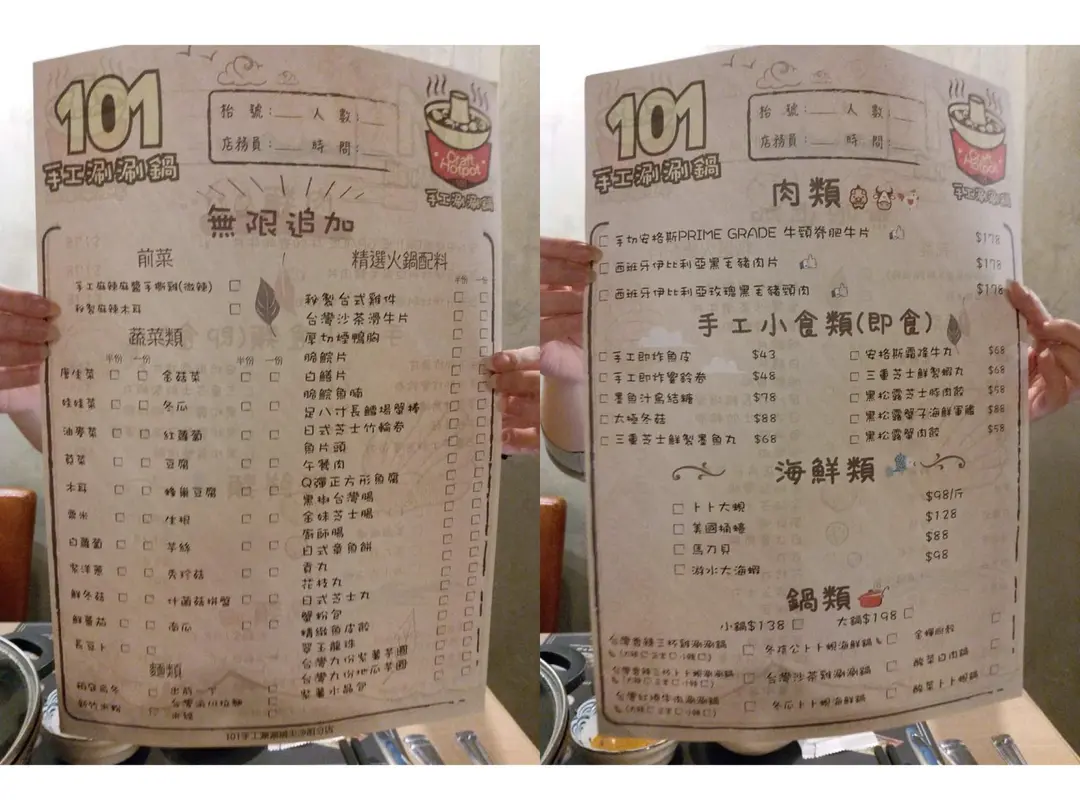 101
手工涮涮鍋
抬 號：___ 人 數：___
店務員：___ 時 間：___
Craft
Hotpot
手工涮涮鍋
無限追加
前菜
手工麻辣麻醬手撕雞(微辣)
秘製麻辣木耳
蔬菜類
半份 一份 半份 一份
唐生菜 金菇菜
娃娃菜 冬瓜
油麥菜 紅蘿蔔
茼菜 豆腐
木耳 蜂巢豆腐
粟米 生根
白蘿蔔 芋絲
紫洋蔥 秀珍菇
鮮冬菇 什菌菇拼盤
鮮蕃茄 南瓜
長豆卜
麵類
稻庭烏冬 出前一丁
新竹米粉
精選火鍋配料
半份 一份
秘製台式雞件
台灣沙茶滑牛片
厚切煙鴨胸
脆鯇片
白鱔片
脆鯇魚腩
足八寸長鱈場蟹棒
日式芝士竹輪卷
魚片頭
午餐肉
Q彈正方形魚腐
黑椒台灣腸
余妹芝士腸
廚師腸
日式章魚餅
貢丸
花枝丸
日式芝士丸
蟹粉包
精緻魚皮餃
翠玉龍珠
台灣九份紫薯芋圓
台灣九份地瓜芋圓
紫薯水晶包
101
手工涮涮鍋
抬 號：___ 人 數：___
店務員：___ 時 間：___
Craft
Hotpot
手工涮涮鍋
肉類
手切安格斯PRIME GRADE 牛頸脊肥牛片 $178
西班牙伊比利亞黑毛豬肉片 $178
西班牙伊比利亞玫瑰黑毛豬頸肉 $178
手工小食類(即食)
手工即炸魚皮 $43
手工即炸響鈴卷 $48
墨魚汁烏結糖 $78
太極冬菇 $88
三重芝士鮮製墨魚丸 $68
安格斯霜降牛丸 $68
三重芝士鮮製蝦丸 $68
黑松露芝士豚肉餃 $58
黑松露蟹子海鮮軍艦 $88
黑松露蟹肉餃 $58
海鮮類
卜卜大蜆 $98/斤
美國埇蠔 $128
馬刀貝 $88
游水大海蝦 $98
鍋類
小鍋$138 大鍋$198
台灣香辣三杯雞涮涮鍋
(大辣 正常 小辣)
台灣香辣三杯卜卜蜆涮涮鍋
(大辣 正常 小辣)
台灣紅燒牛肉涮涮鍋
(大辣 正常 小辣)
冬蔭公卜卜蜆海鮮鍋
台灣沙茶雞涮涮鍋
冬瓜卜卜蜆海鮮鍋
酸菜白肉鍋
酸菜卜卜蜆鍋